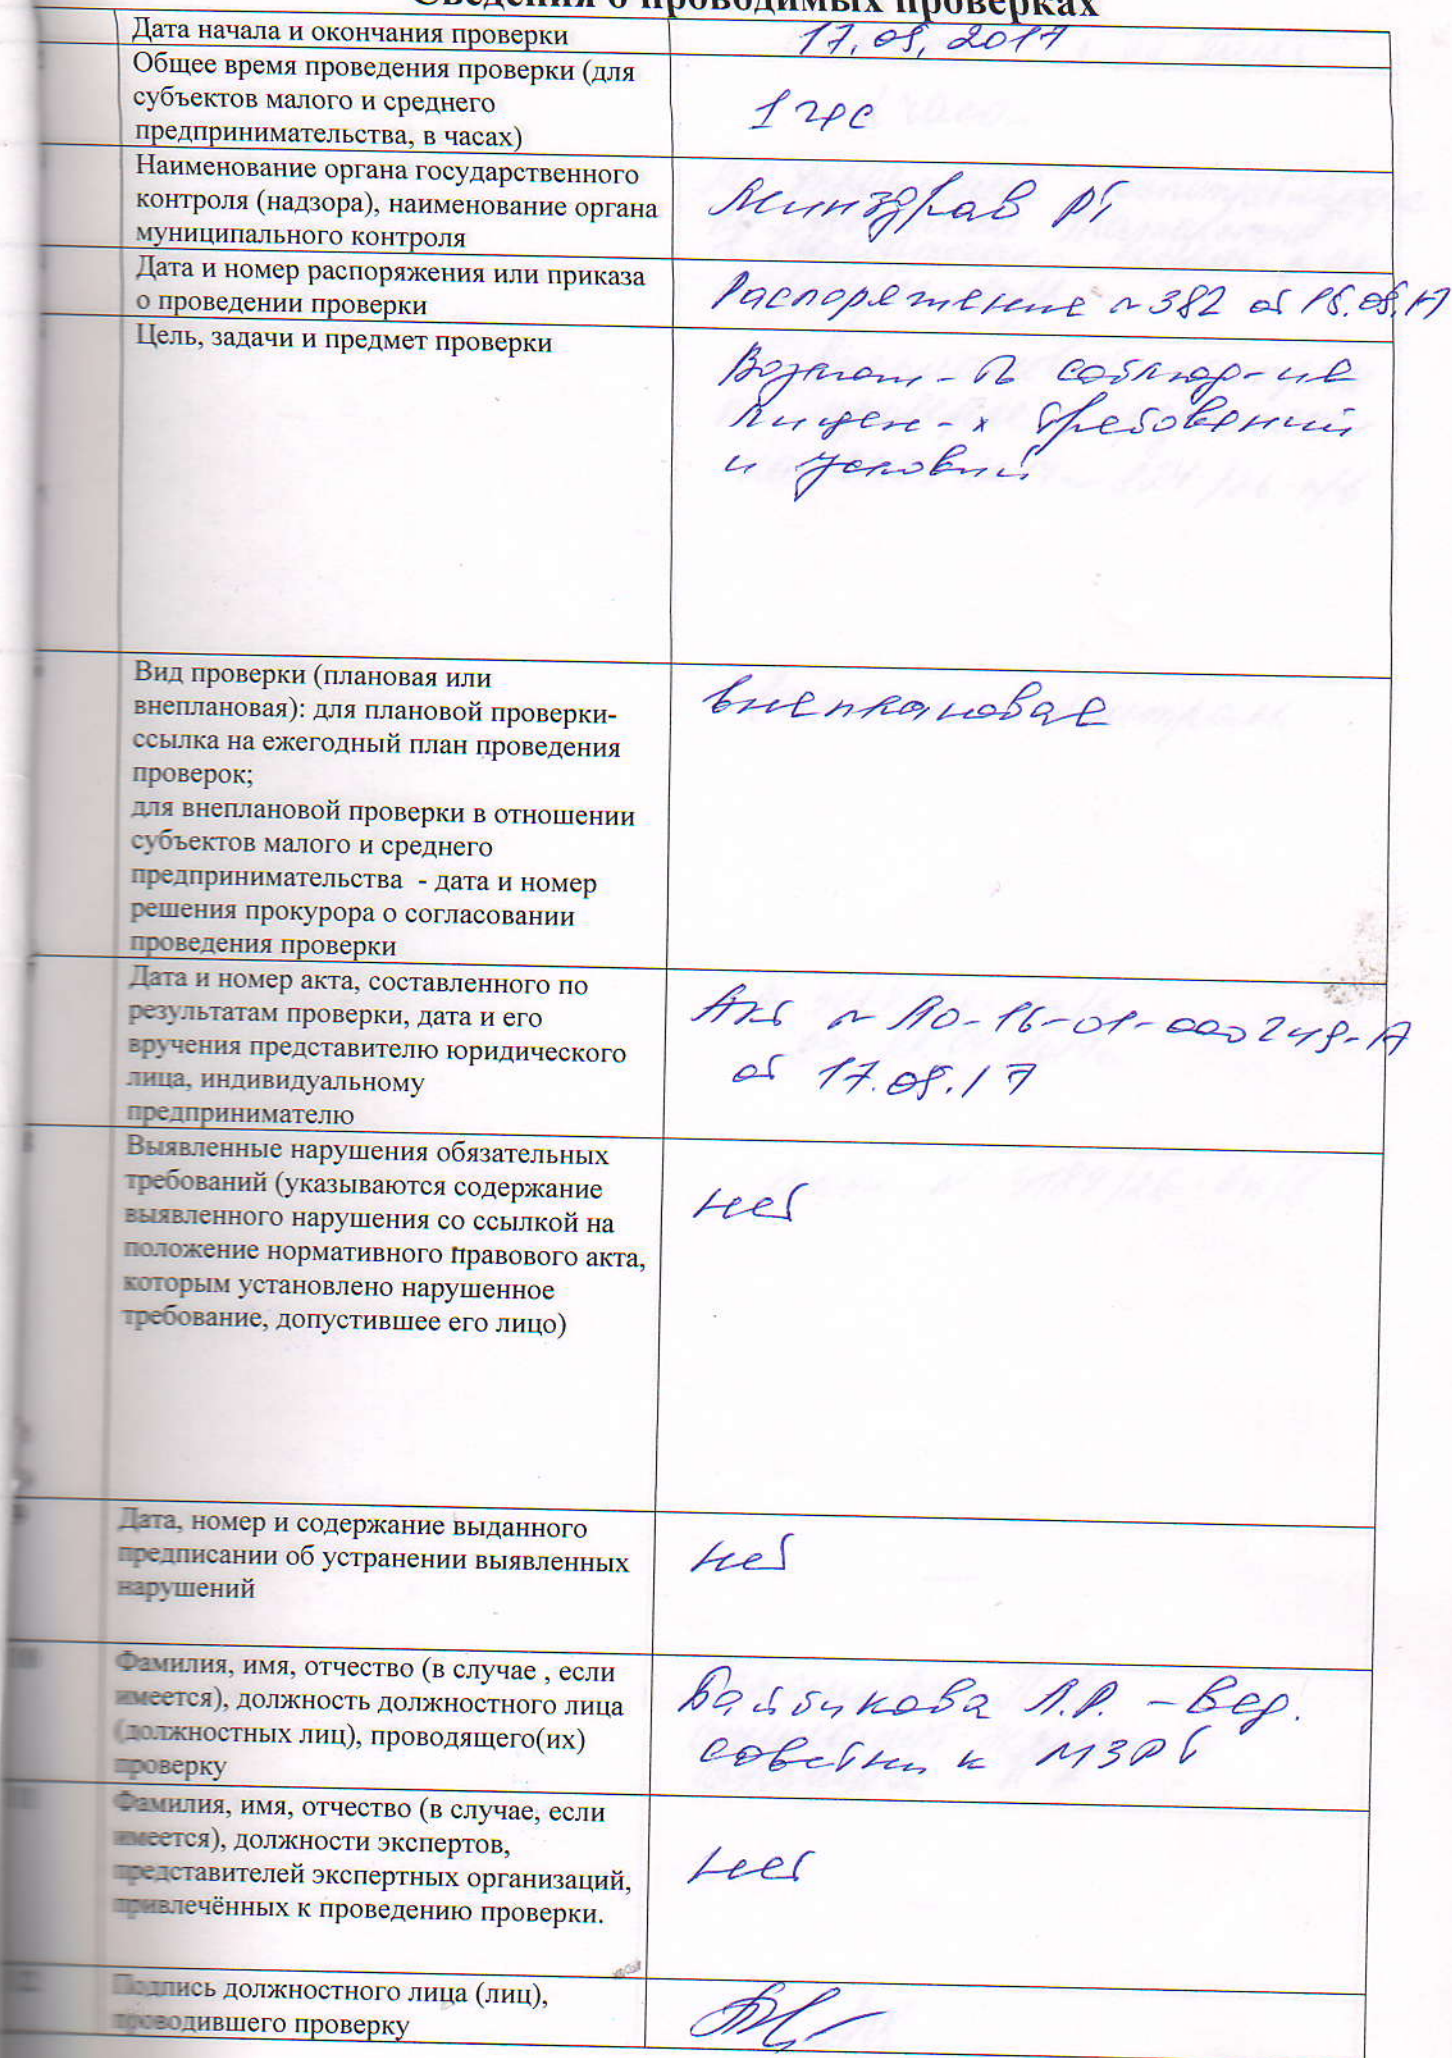 Сведения о проводимых проверках
Дата начала и окончания проверки
17.08.2017
Общее время проведения проверки (для
субъектов малого и среднего
предпринимательства, в часах)
1 час
Наименование органа государственного
контроля (надзора), наименование органа
муниципального контроля
Минздрав РТ
Дата и номер распоряжения или приказа
о проведении проверки
Распоряжение № 382 от
Цель, задачи и предмет проверки
Возмож-ть соблюд-ия
лицен-х требований
и условий
Вид проверки (плановая или
внеплановая): для плановой проверки-
ссылка на ежегодный план проведения
проверок;
для внеплановой проверки в отношении
субъектов малого и среднего
предпринимательства - дата и номер
решения прокурора о согласовании
проведения проверки
внеплановая
Дата и номер акта, составленного по
результатам проверки, дата и его
вручения представителю юридического
лица, индивидуальному
предпринимателю
Акт № ЛО-16-01-000249-А
от 17.08.17
8
Выявленные нарушения обязательных
требований (указываются содержание
выявленного нарушения со ссылкой на
положение нормативного правового акта,
которым установлено нарушенное
требование, допустившее его лицо)
нет
9
Дата, номер и содержание выданного
предписании об устранении выявленных
нарушений
нет
10
Фамилия, имя, отчество (в случае , если
имеется), должность должностного лица
(должностных лиц), проводящего(их)
проверку
Байбикова Л.Р. - вед.
советник МЗРТ
11
Фамилия, имя, отчество (в случае, если
имеется), должности экспертов,
представителей экспертных организаций,
привлечённых к проведению проверки.
нет
12
Подпись должностного лица (лиц),
проводившего проверку